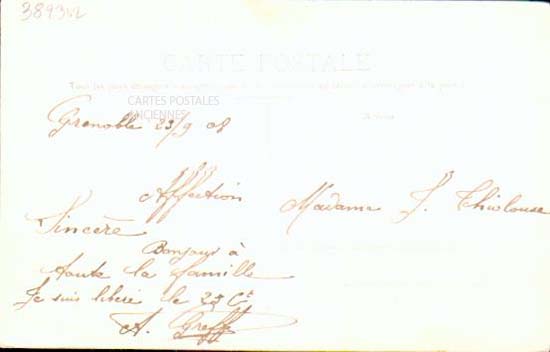 389342
CARTE POSTALE
CARTES POSTALES
ANCIENNES
Grenoble 23/9 08
Affection
Sincère
Bonjour à
toute la famille
Je suis libéré le 25 Ct
A. Greff
Madame J. Thiolouse